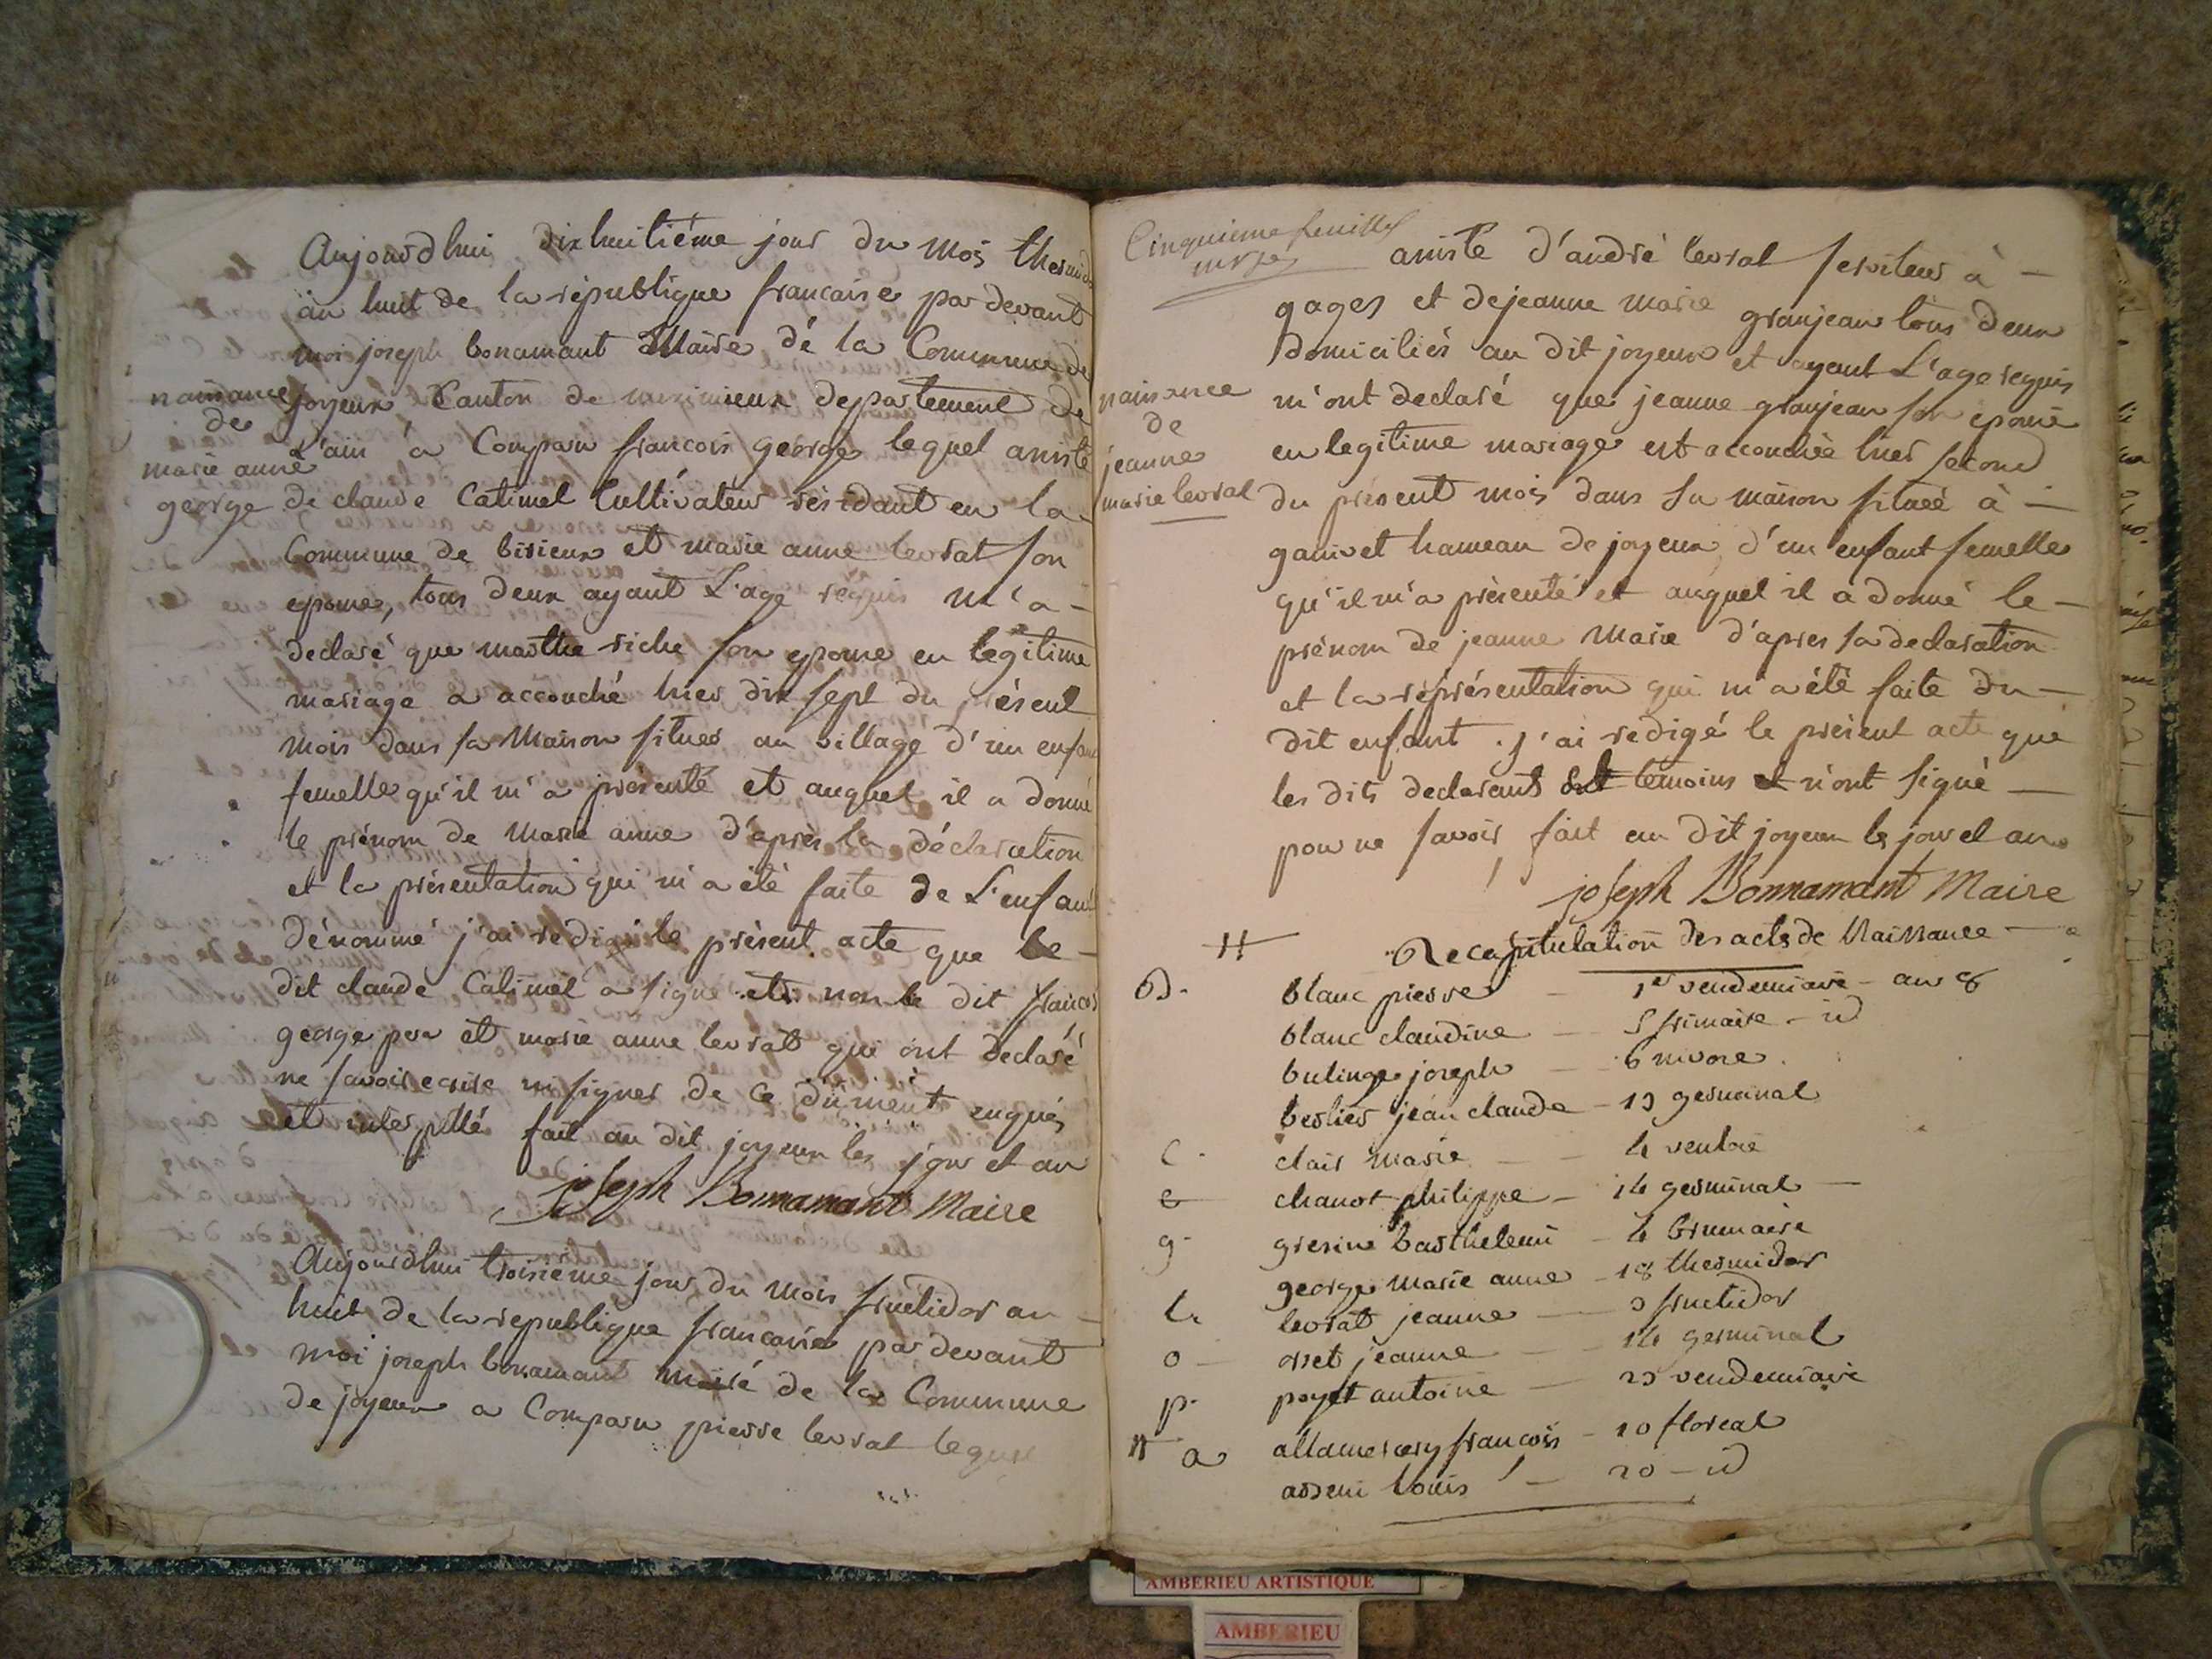 Aujourdhui dixhuitiéme jour du mois thermid
an huit de la republique francaise par devant
moi joseph bonamant Maire dé la Commune de
joyeux Canton de meximieux departement de
l'ain a Comparu francois george lequel assisté
de claude Catimel Cultivateur résidant en la
Commune de birieux et marie anne levrat son
epouse, tous deux ayant L'age requis m'a -
declaré que marthe riche son epouse en legitime
mariage a accouché hier dix sept du présent
mois dans sa Maison située au village d'un enfant
femelle qu'il m'a présenté et auquel il a donné
le prénom de Marie anne d'après la déclaration
et la présentation qui m'a été faite de L'enfant
dénommé j'ai redigé le présent acte que le -
dit claude Catimel a signé et non le dit francois
george pere et marie anne levrat qui ont declaré
ne savoir ecrire ni signer de ce dûment enquis
et interpellé fait au dit joyeux les jour et an
joseph Bonnamant Maire
naissance
de
marie anne
george
Aujourdhui troisieme jour du mois fructidor an -
huit de la republique francaise par devant
moi joseph bonamant maire de la Commune
de joyeux a Comparu pierre levrat lequel
Cinquieme feuillet
assisté d'andré levrat serviteur à -
gages et de jeanne marie granjean tous deux
domiciliés au dit joyeux et ayant L'age requis
m'ont declaré que jeanne granjean son epouse
en legitime mariage est accouchée hier second
du présent mois dans sa maison située à -
ganivet hameau de joyeux, d'un enfant femelle
qu'il m'a présenté et auquel il a donné le -
prénom de jeanne Marie d'apres sa declaration
et la représentation qui m'a été faite du -
dit enfant. j'ai redigé le présent acte que
les dits declarants et temoins n'ont signé -
pour ne savoir fait au dit joyeux les jour et an
joseph Bonnamant Maire
naissance
de
jeanne
marie levrat
Recapitulation des acts de Naissance -
B. blanc pierre - 1er vendemiaire - an 8
blanc claudine - 5 frimaire - id
bulinge joseph - 6 nivose.
berlier jean claude - 13 germinal
C - clair marie - - 4 ventose
c chanot philippe - 14 germinal -
g - gresine barthelemi - 4 brumaire
george Marie anne - 18 thermidor
L. levrat jeanne - 3 fructidor
o - orset jeanne - - 14 germinal
p. payet antoine - 23 vendemiaire
a allamercery francois - 10 floreal
louis - 20 - id
AMBERIEU ARTISTIQUE
AMBERIEU